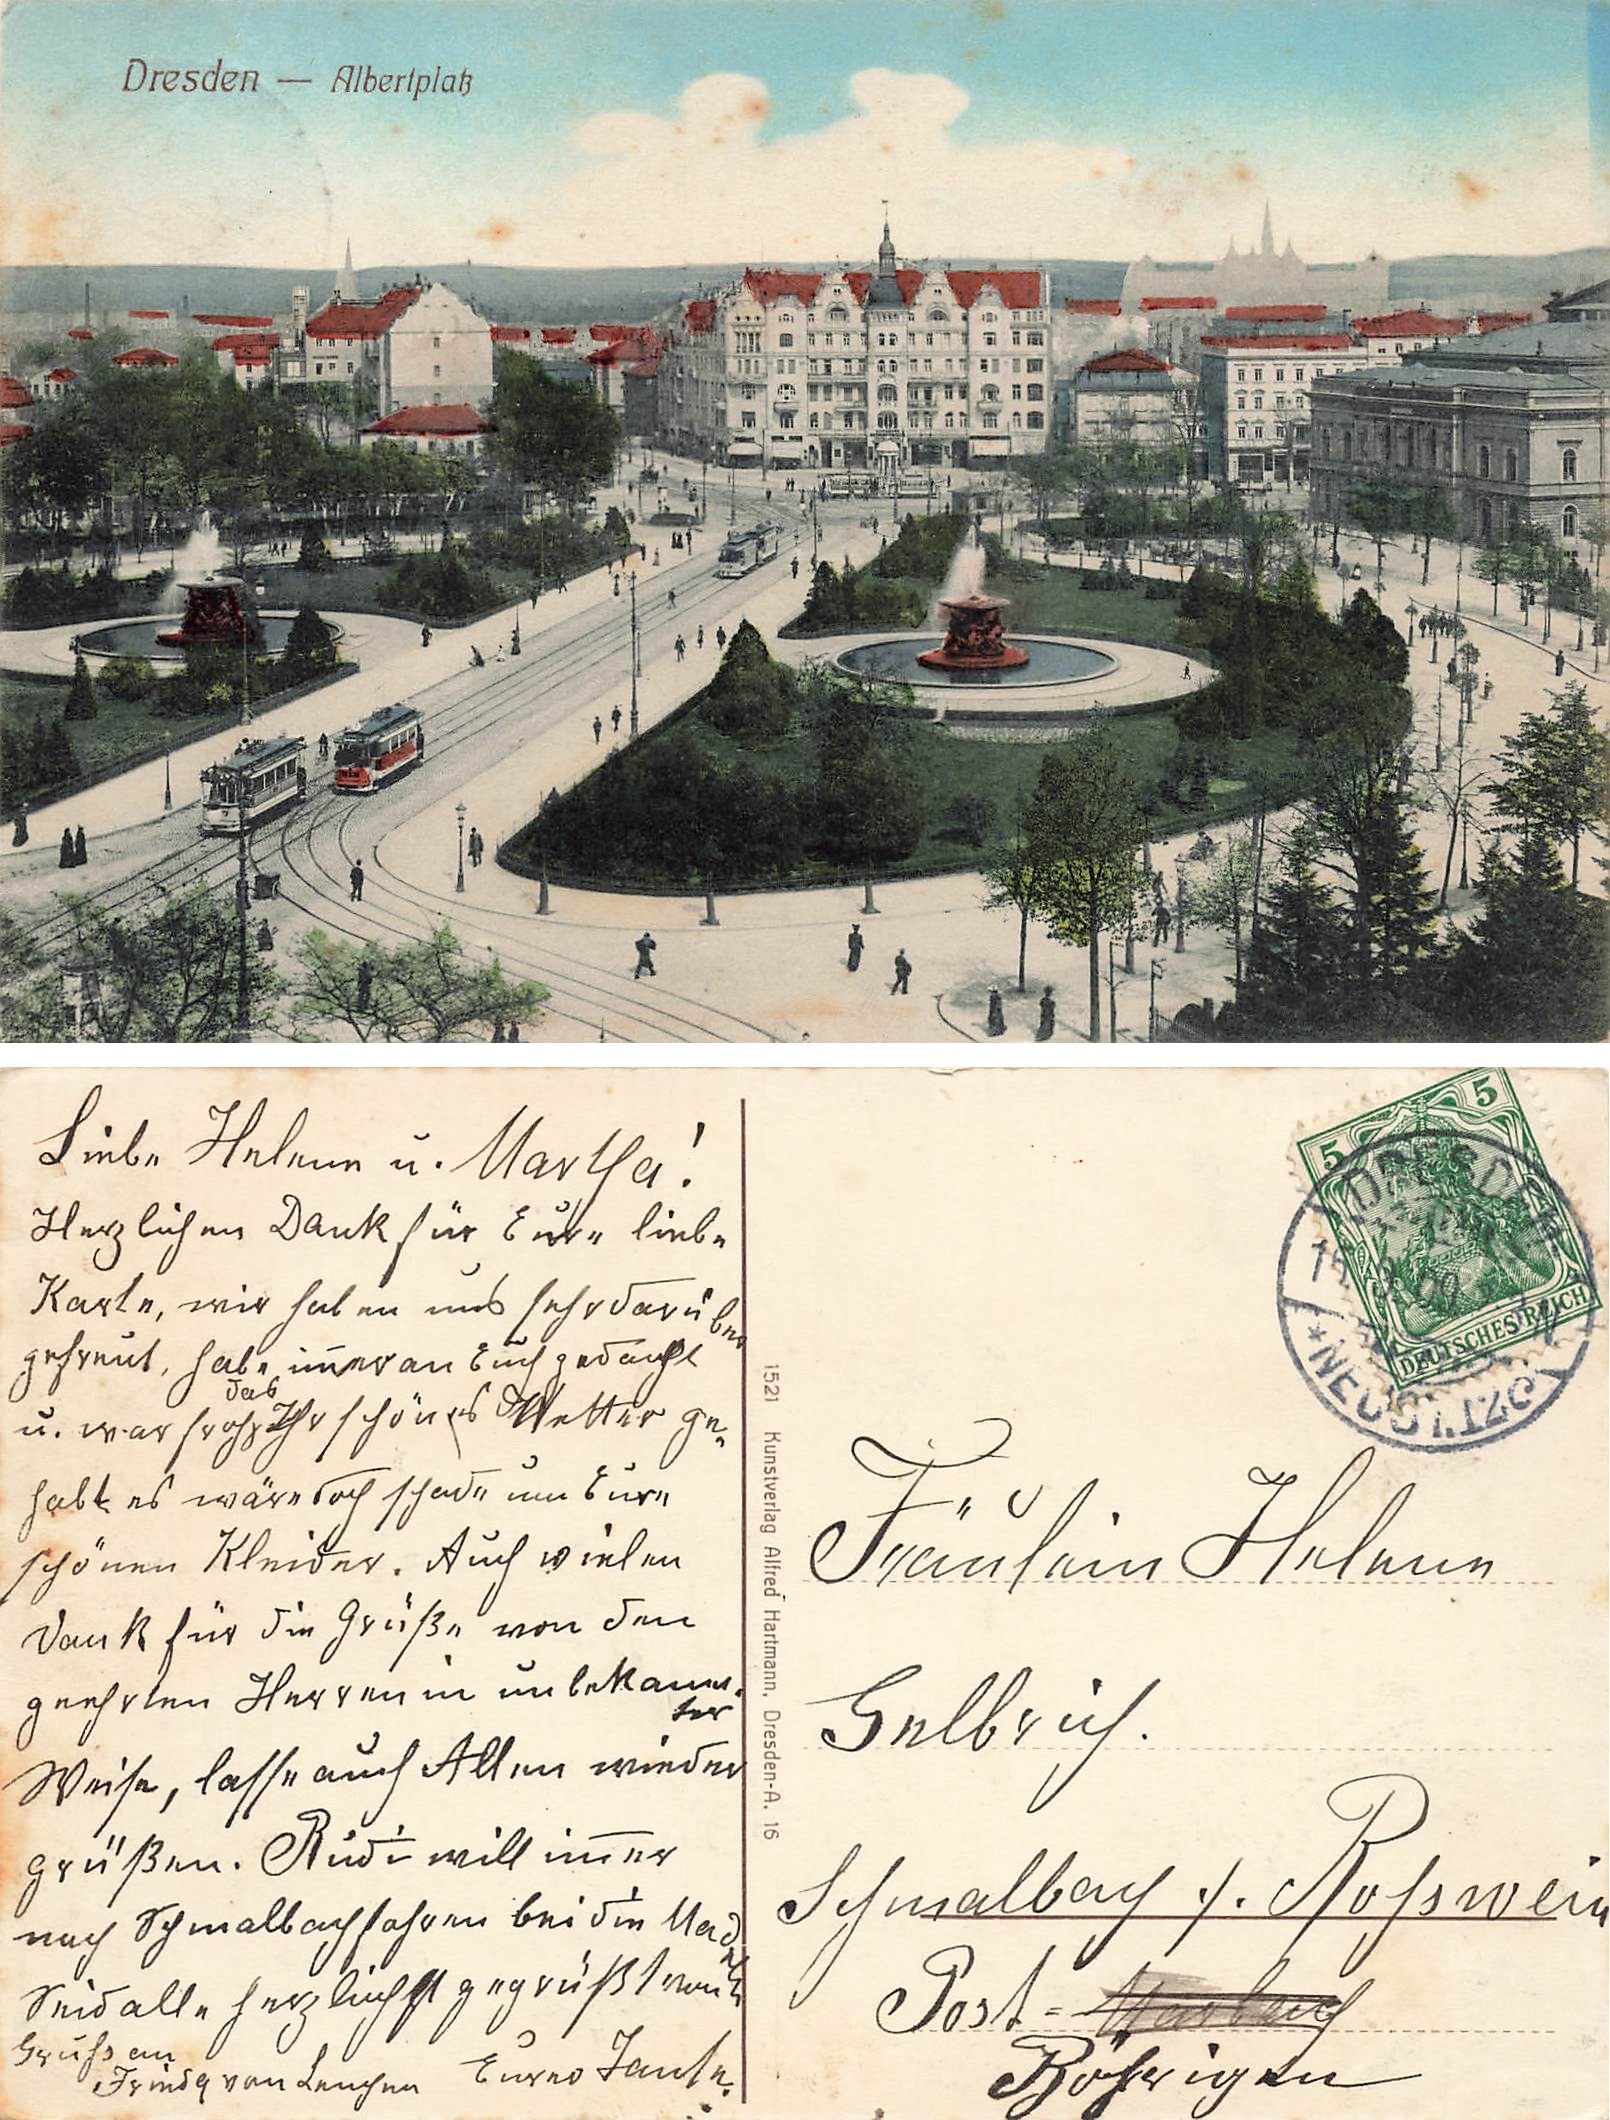 Dresden — Albertplatz
Liebe Helene u. Martha!
Herzlichen Dank für Eure liebe
Karte, wir haben uns sehr darüber
gefreut, habe im̅er an Euch gedacht
u. war froh das Ihr schönes Wetter ge-
habt es wäre doch schade um Eure
schönen Kleider. Auch vielen
Dank für die Grüße von den
geehrten Herren in unbekann-
ter
Weise, lasse auch Allen wieder
grüßen. Rudi will im̅er
nach Schmalbach fahren bei die Mad
Seid alle herzlichst gegrüßt von
Gruß an
Frieda von Lenchen
Eurer Tante.
1521 Kunstverlag Alfred Hartmann, Dresden-A. 16
5 5
DEUTSCHES REICH
DRESDEN
*NEUST.
Fräulein Helene
Gelbrich.
Schmalbach b. Roßwein
Post = Marbach
Böhrigen